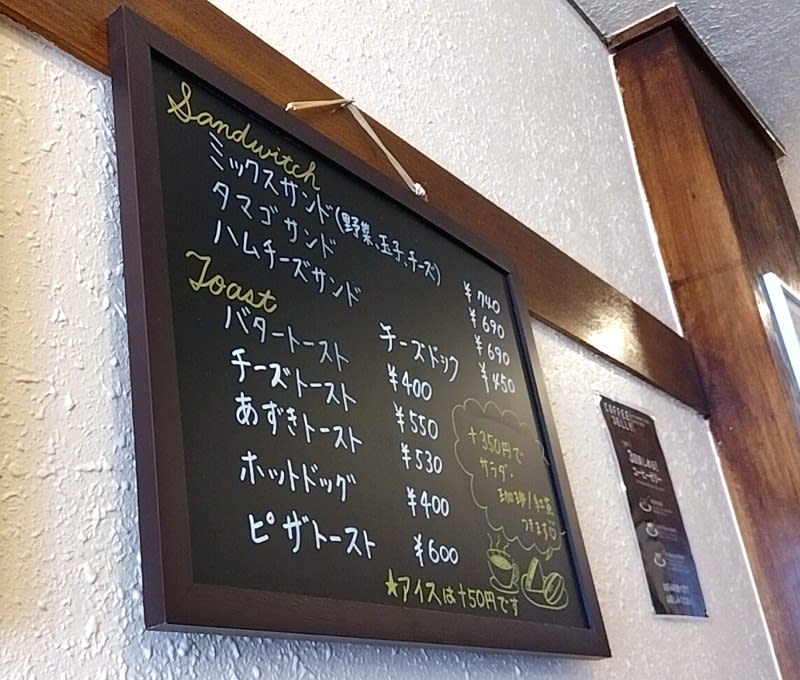 Sandwitch
ミックスサンド(野菜、玉子、チーズ) ¥740
タマゴサンド ¥690
ハムチーズサンド ¥690
Toast
チーズドック ¥450
バタートースト ¥400
チーズトースト ¥550
あずきトースト ¥530
ホットドッグ ¥400
ピザトースト ¥600
+350円で
サラダ・
珈琲/紅茶
つきます
★アイスは+50円です
COFFEE
JELLY